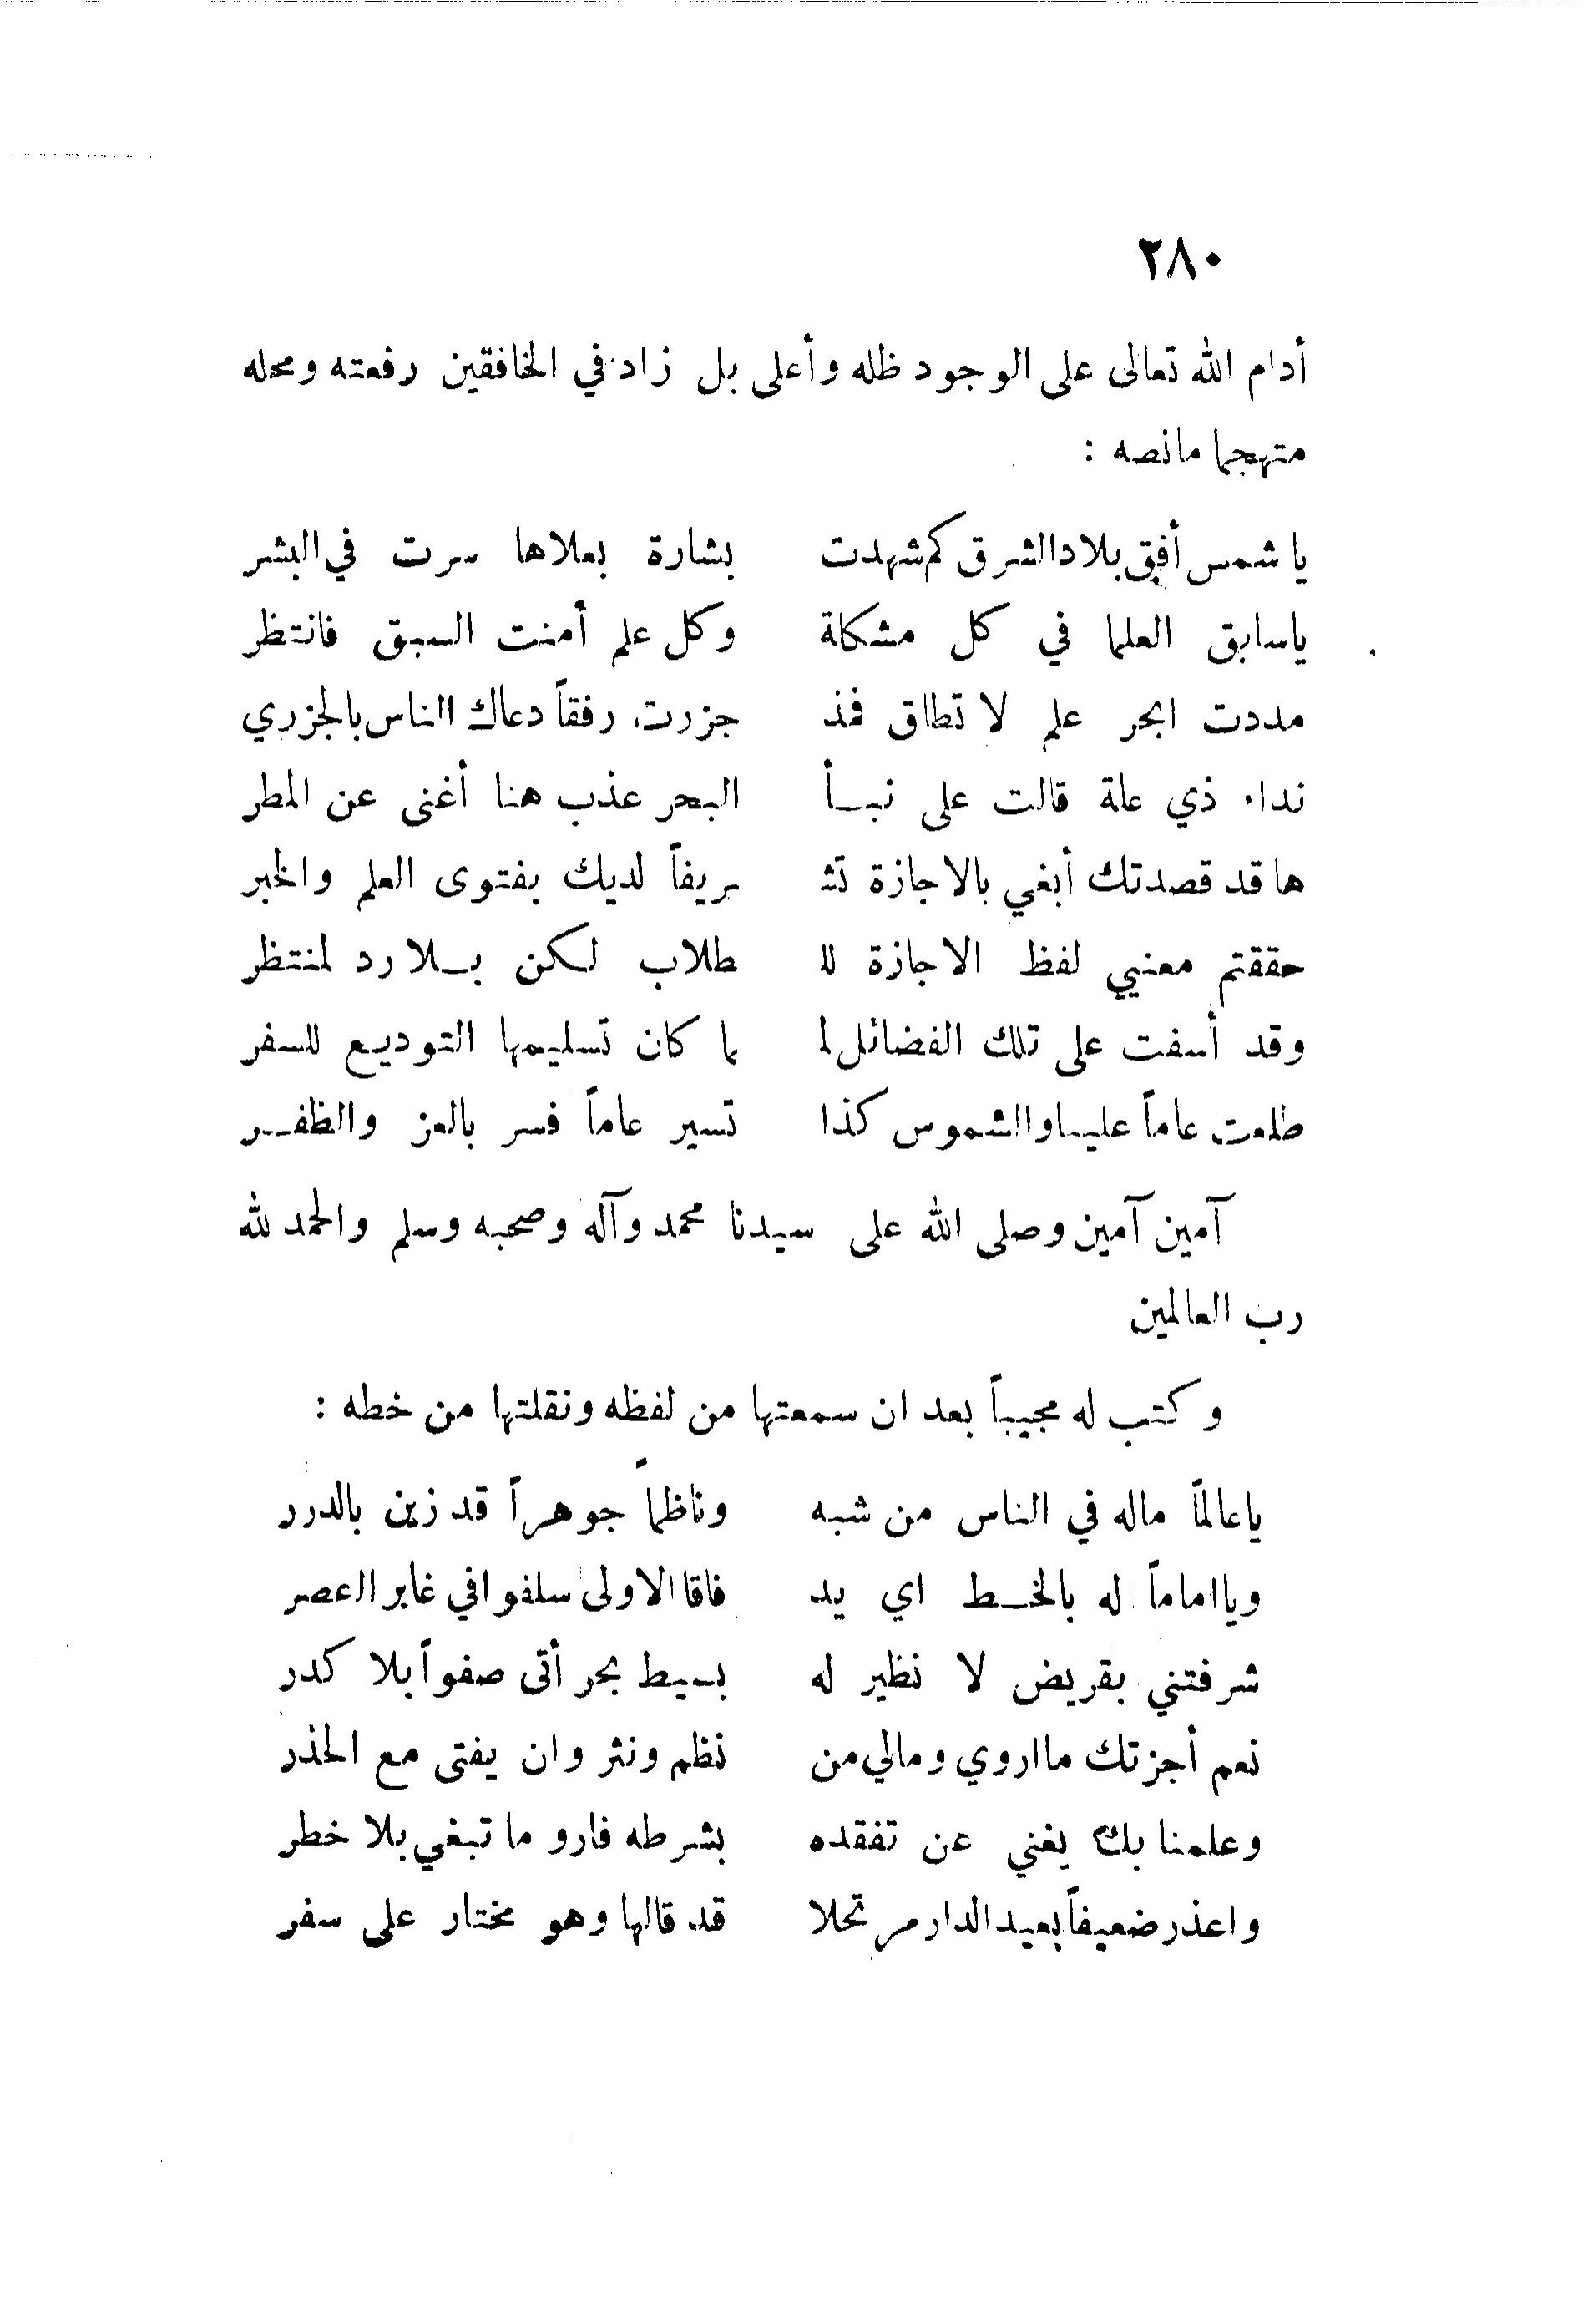 ٢٨٠
أدام الله تعالى على الوجود ظله وأعلى بل زاد في الخافقين رفعته ومحله
متهجما مانصه :
يا شمس أفق بلاد الشرق كم شهدت بشارة بعلاها سرت في البشر
ياسابق العلما في كل مشكلة وكل علم أمنت السبق فانتظر
مددت ابحر علم لا تطاق فمذ جزرت رفقاً دعاك الناس بالجزري
نداء ذي علة قالت على نبأ البحر عذب هنا أغنى عن المطر
ها قد قصدتك أبغي بالاجازة تشـ ـريفاً لديك بفتوى العلم والخبر
حققتم معنيي لفظ الاجازة للـ ـطلاب لكن بلا رد لمنتظر
وقد أسفت على تلك الفضائل لـ ـما كان تسليمها التوديع للسفر
طلعت عاماً عليـا والشموس كذا تسير عاماً فسر بالعز والظفر
آمين آمين وصلى الله على سيدنا محمد وآله وصحبه وسلم والحمد لله
رب العالمين
وكتب له مجيباً بعد ان سمعتها من لفظه ونقلتها من خطه :
ياعالماً ماله في الناس من شبه وناظماً جوهراً قد زين بالدرر
ويااماماً له بالخط اي يد فاقا الاولى سلفوا في غابر العصر
شرفتني بقريض لا نظير له بسيط بحر أتى صفواً بلا كدر
نعم أجزتك ما اروي ومالي من نظم ونثر وان يفتى مع الحذر
وعلمنا بك يغني عن تفقده بشرطه فارو ما تبغي بلا خطر
واعذر ضعيفاً بعيد الدار مرتحلا قد قالها وهو مختار على سفر